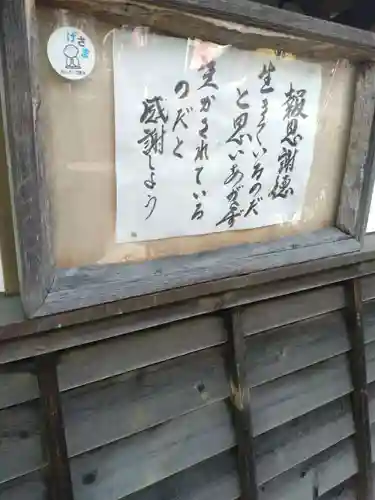 報恩謝徳
生きているのだ
と思いあがらず
生かされている
のだと
感謝しよう
げさま